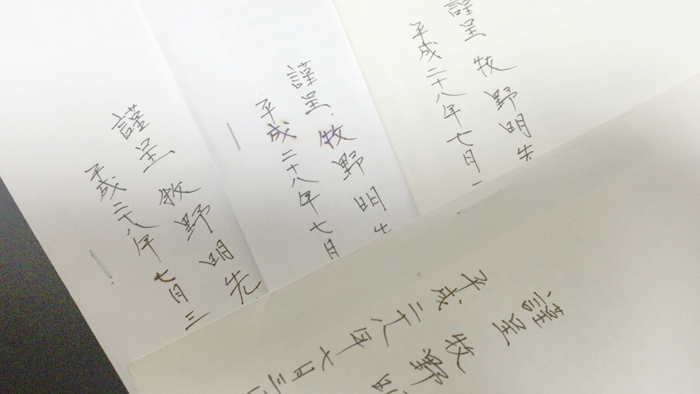 謹呈 牧野明先
平成二十八年 七月三
謹呈 牧野明先
平成二十八年 七月
謹呈 牧野明先
平成二十八年七月
謹呈 牧野明
平成二十八年 七月三